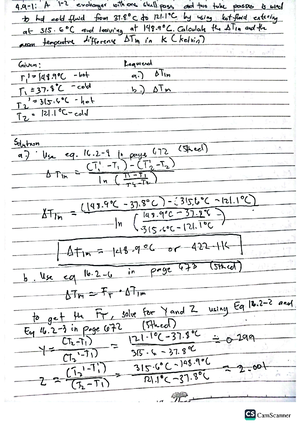 4.9-1: A 1-2 exchanger with one shell pass and two tube passes is used
to heat cold fluid from 37.8°C to 121.1°C by using hot fluid entering
at 315.6°C and leaving at 148.9°C. Calculate the ΔTlm and the
mean temperature difference ΔTm in K (kelvin)
Given: Required
T1' = 148.9°C - hot a.) ΔTlm
T1 = 37.8°C - cold b.) ΔTm
T2' = 315.6°C - hot
T2 = 121.1°C - cold
Solution
a.) Use eq. 16.2-9 in page 672 (5thed)
ΔTlm = (T1' - T1) - (T2' - T2)
ln (T1' - T1 / T2' - T2)
ΔTlm = (148.9°C - 37.8°C) - (315.6°C - 121.1°C)
ln (148.9°C - 37.8°C / 315.6°C - 121.1°C)
ΔTlm = 148.9°C or 422.1K
b. Use eq 16.2-6 in page 673 (5thed)
ΔTm = FT · ΔTlm
to get the FT, solve for Y and Z using Eq 16.2-2 and
Eq 16.2-3 in page 672 (5thed)
Y = (T2 - T1) / (T2' - T1) = 121.1°C - 37.8°C / 315.6 - 37.8°C = 0.299
Z = (T2' - T1') / (T2 - T1) = 315.6°C - 148.9°C / 121.1°C - 37.8°C = 2.001
CS CamScanner